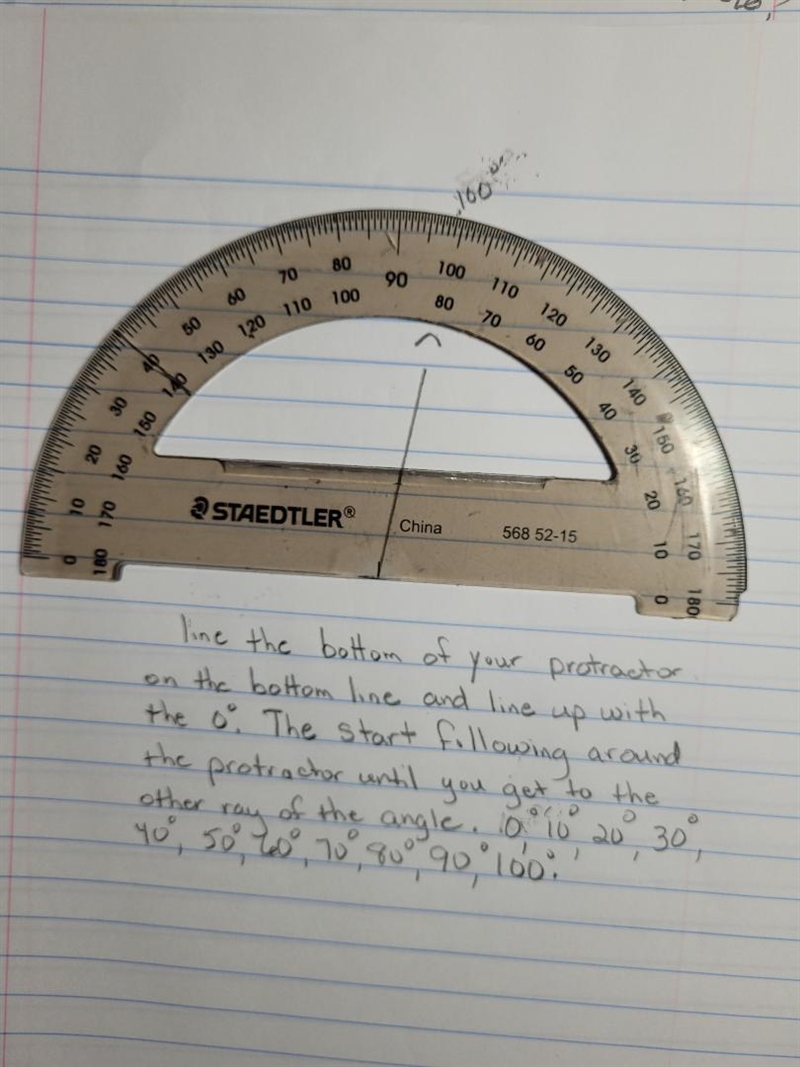 100°
70 80 90 100 110
60 110 100 80 70 120
50 120 60 130
40 130 50 140
30 140 40 150
20 150 30 160
10 160 20 170
0 170 10 180
180 0
STAEDTLER®
China
568 52-15
line the bottom of your protractor
on the bottom line and line up with
the 0°. The start following around
the protractor until you get to the
other ray of the angle. 0°, 10°, 20°, 30°,
40°, 50°, 60°, 70°, 80°, 90°, 100°.